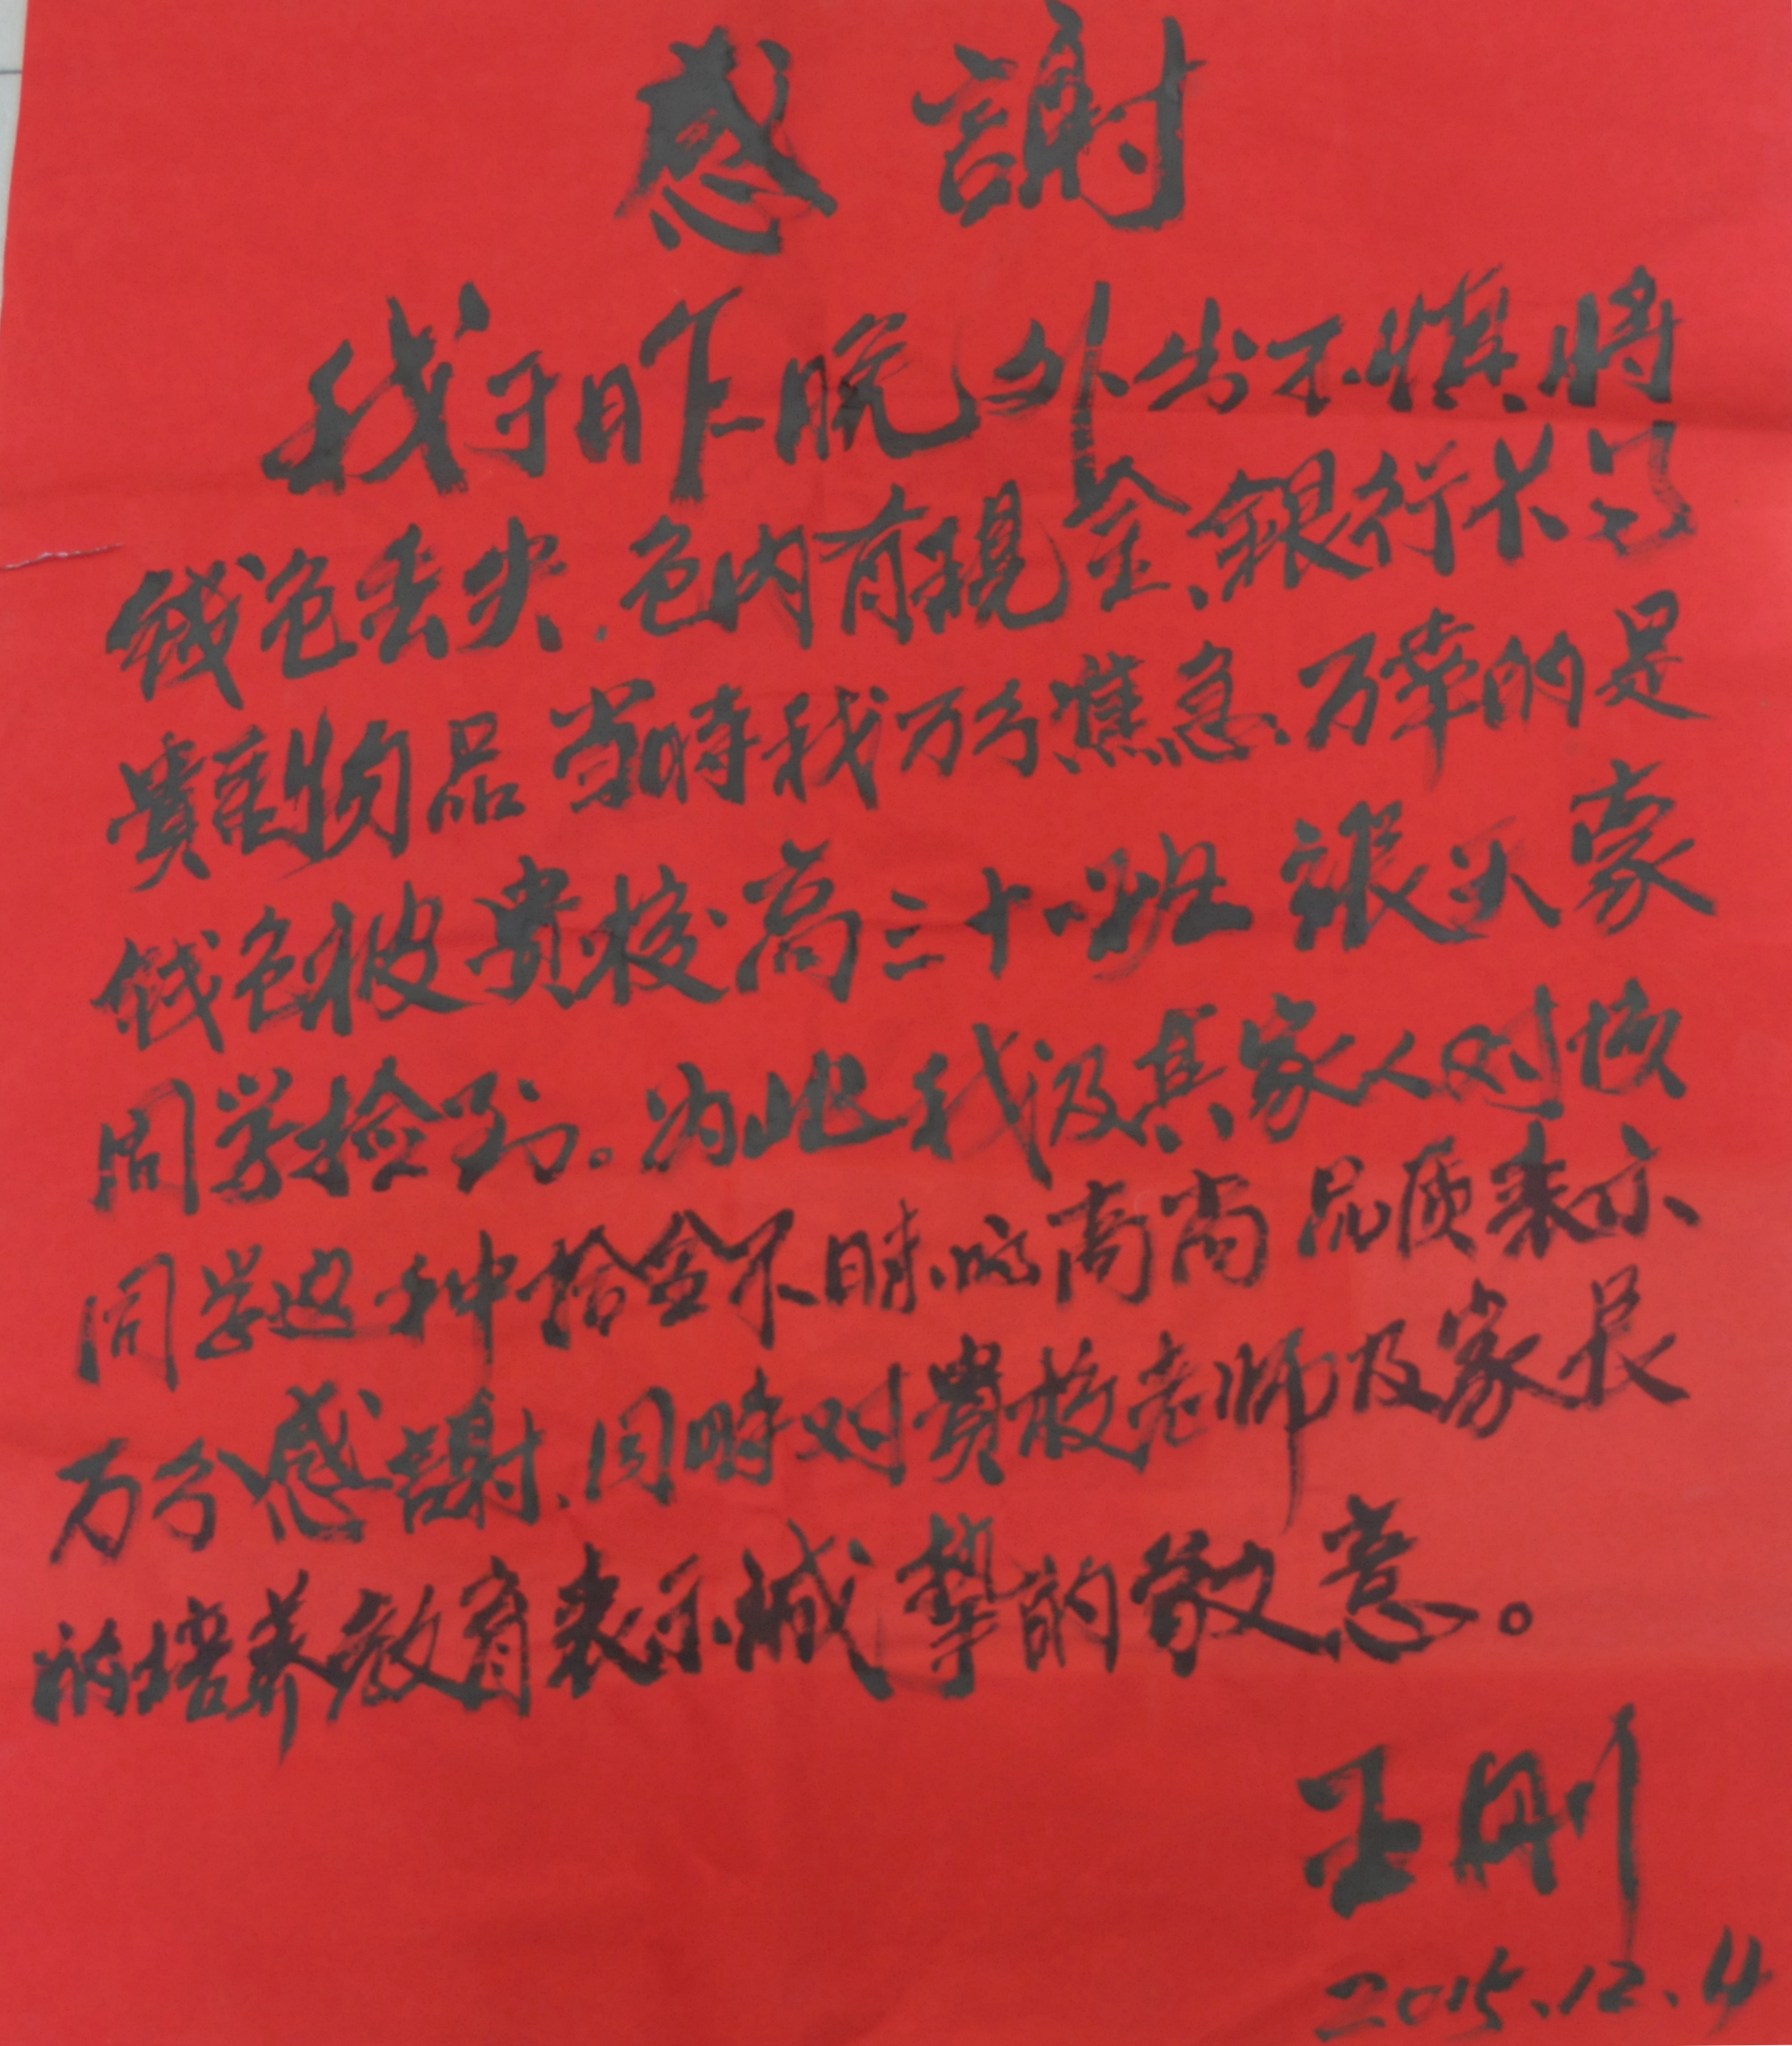 感謝
我于昨晚外出不慎將
钱包丢失.包内有現金、銀行卡等
貴重物品 当時我万分焦急、万幸的是
钱包被貴校高三十一班 張天豪
同学捡到。为此我及其家人对该
同学这种拾金不昧的高尚品质表示
万分感謝.同時对貴校老师及家长
的培养教育表示诚挚的敬意。
王刚
2015.12.4